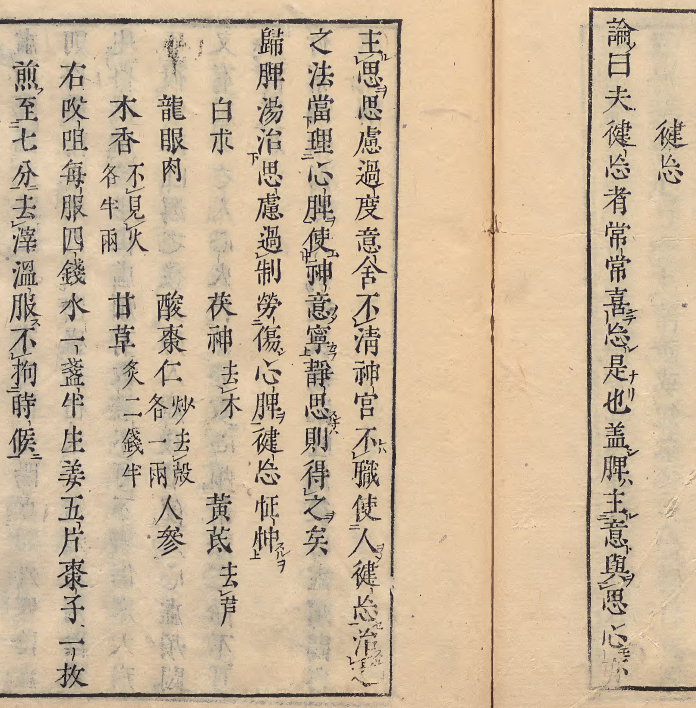 健忘
論曰夫健忘者常常喜忘是也盖脾主意與思心亦
主思思慮過度意舍不清神官不職使人健忘治之
之法當理心脾使神意寧靜思則得之矣
歸脾湯治思慮過制勞傷心脾健忘怔忡
白朮 茯神去木 黃芪去芦
龍眼肉 酸棗仁炒去殼各一兩 人參
木香不見火各半兩 甘草炙二錢半
右㕮咀每服四錢水一盞半生姜五片棗子一枚
煎至七分去滓溫服不拘時候